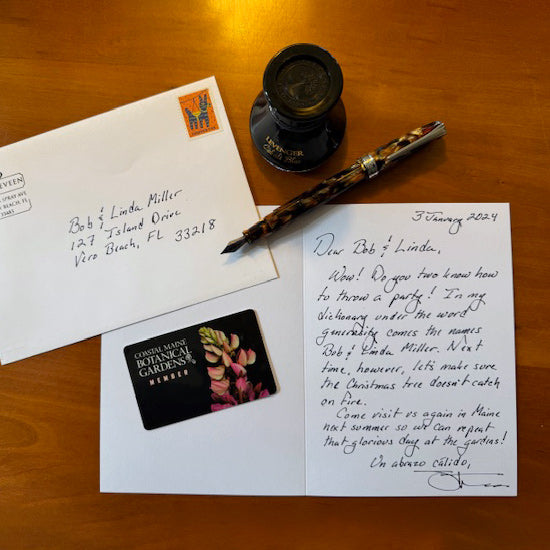 EVEEN
SPRAY AVE
BEACH, FL
Bob & Linda Miller
127 Island Drive
Vero Beach, FL 33218
LEVENGER
3 January 2024
Dear Bob & Linda,
Wow! Do you two know how
to throw a party! In my
dictionary under the word
generosity comes the names
Bob & Linda Miller. Next
time, however, let's make sure
the Christmas tree doesn't catch
on fire.
Come visit us again in Maine
next summer so we can repeat
that glorious day at the gardens!
Un abrazo cálido,
COASTAL MAINE
BOTANICAL
GARDENS
MEMBER